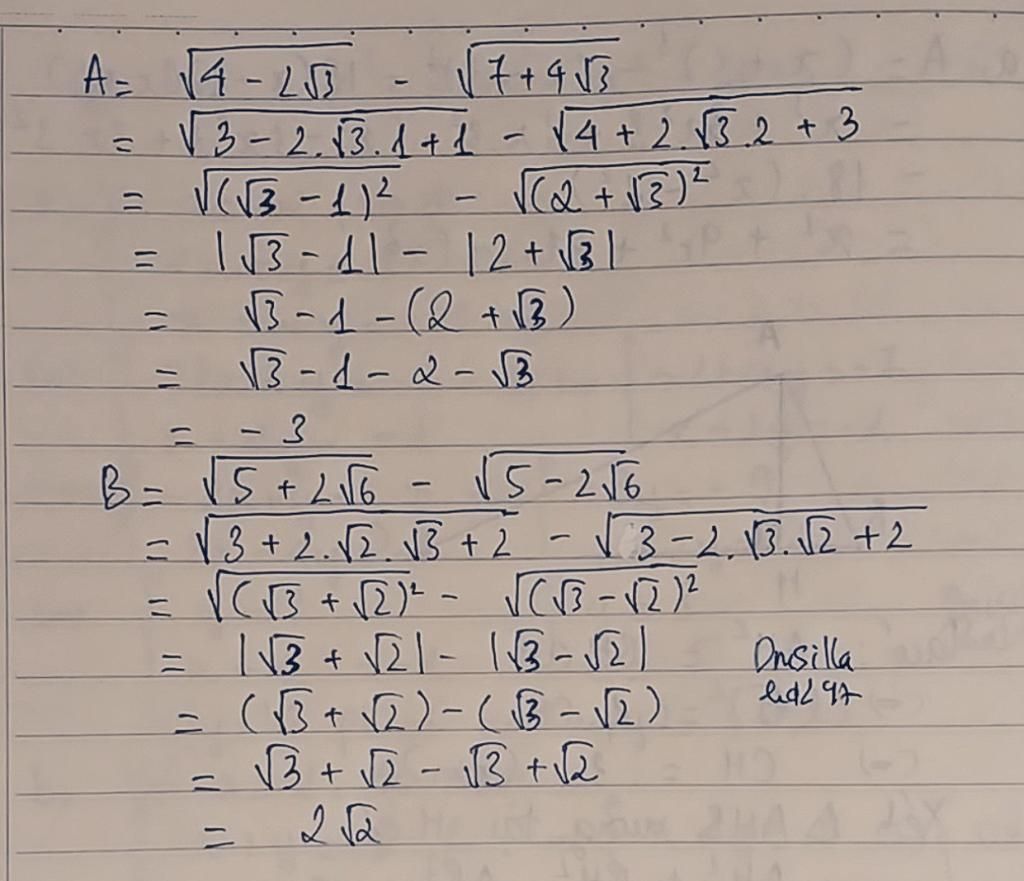 A = √(4 - 2√3) - √(7 + 4√3)
= √(3 - 2.√3.1 + 1) - √(4 + 2.√3.2 + 3)
= √((√3 - 1)²) - √((2 + √3)²)
= |√3 - 1| - |2 + √3|
= √3 - 1 - (2 + √3)
= √3 - 1 - 2 - √3
= - 3
B = √(5 + 2√6) - √(5 - 2√6)
= √(3 + 2.√2.√3 + 2) - √(3 - 2.√3.√2 + 2)
= √((√3 + √2)²) - √((√3 - √2)²)
= |√3 + √2| - |√3 - √2|
= (√3 + √2) - (√3 - √2)
= √3 + √2 - √3 + √2
= 2√2
Drusilla